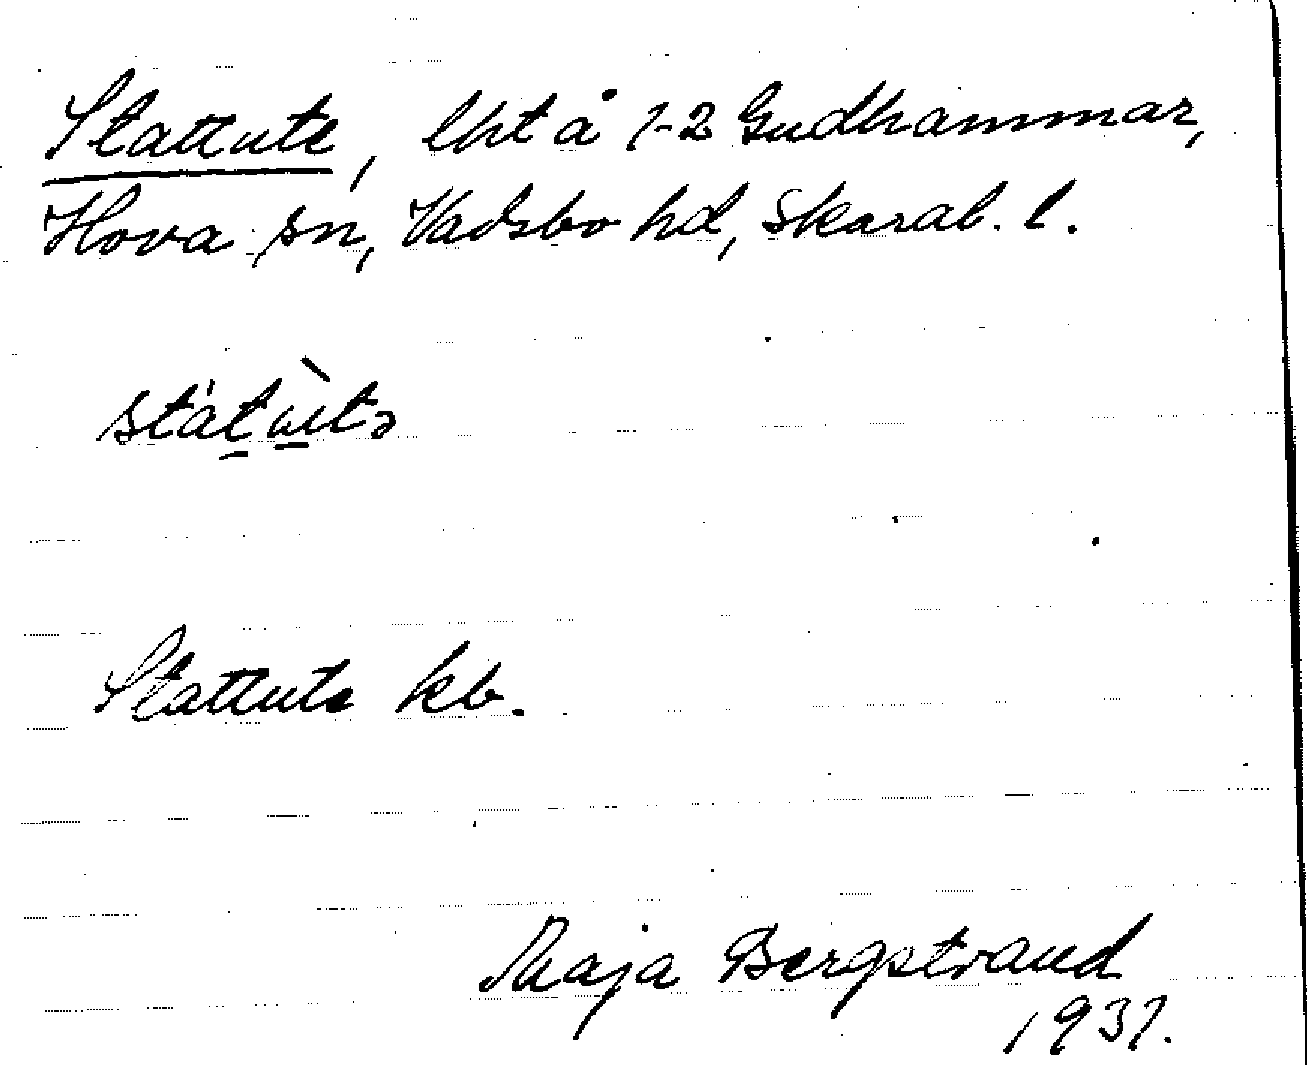 Stattute, lht å 1-2 Gudhammar,
Hova sn, Vadsbo hd, Skarab. l.
státùtə
Stattute kb.
Maja Bergstrand
1937.